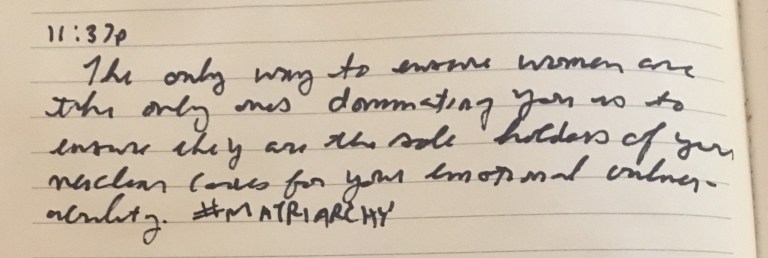 11:37p
The only way to ensure women are
the only ones dominating you is to
ensure they are the sole holders of your
nuclear codes for your emotional vulner-
ability. #MATRIARCHY